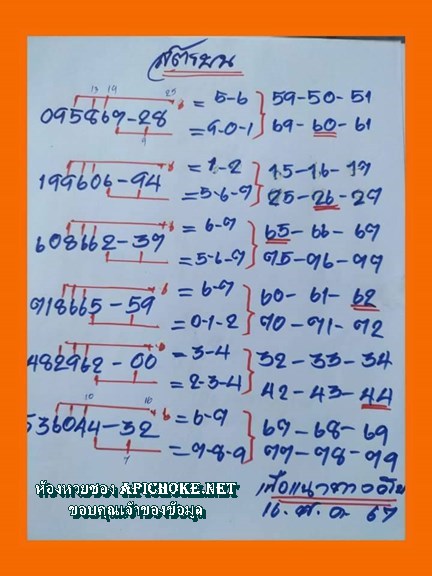 สูตรบน
13 19 25
095867-28 +6 = 5-6 59-50-51
9 = 9-0-1 69-60-61
199606-94 +6 = 1-2 15-16-17
= 5-6-7 25-26-27
608662-37 +6 = 6-7 65-66-67
= 5-6-7 75-76-77
718665-59 +6 = 6-7 60-61-62
= 0-1-2 70-71-72
482962-00 +6 = 3-4 32-33-34
= 2-3-4 42-43-44
10 10
536044-32 +6 = 6-7 67-68-69
7 = 7-8-9 77-78-79
ห้องหวยซอง APICHOKE.NET
ขอบคุณเจ้าของข้อมูล
เพื่อแนวทาง
16. 67